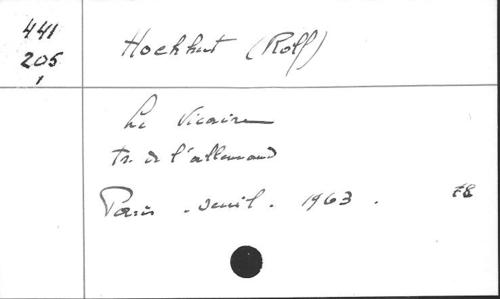 441
205
Hochhut (Rolf)
Le Vicaire
tr. de l'allemand
Paris - Seuil - 1963.